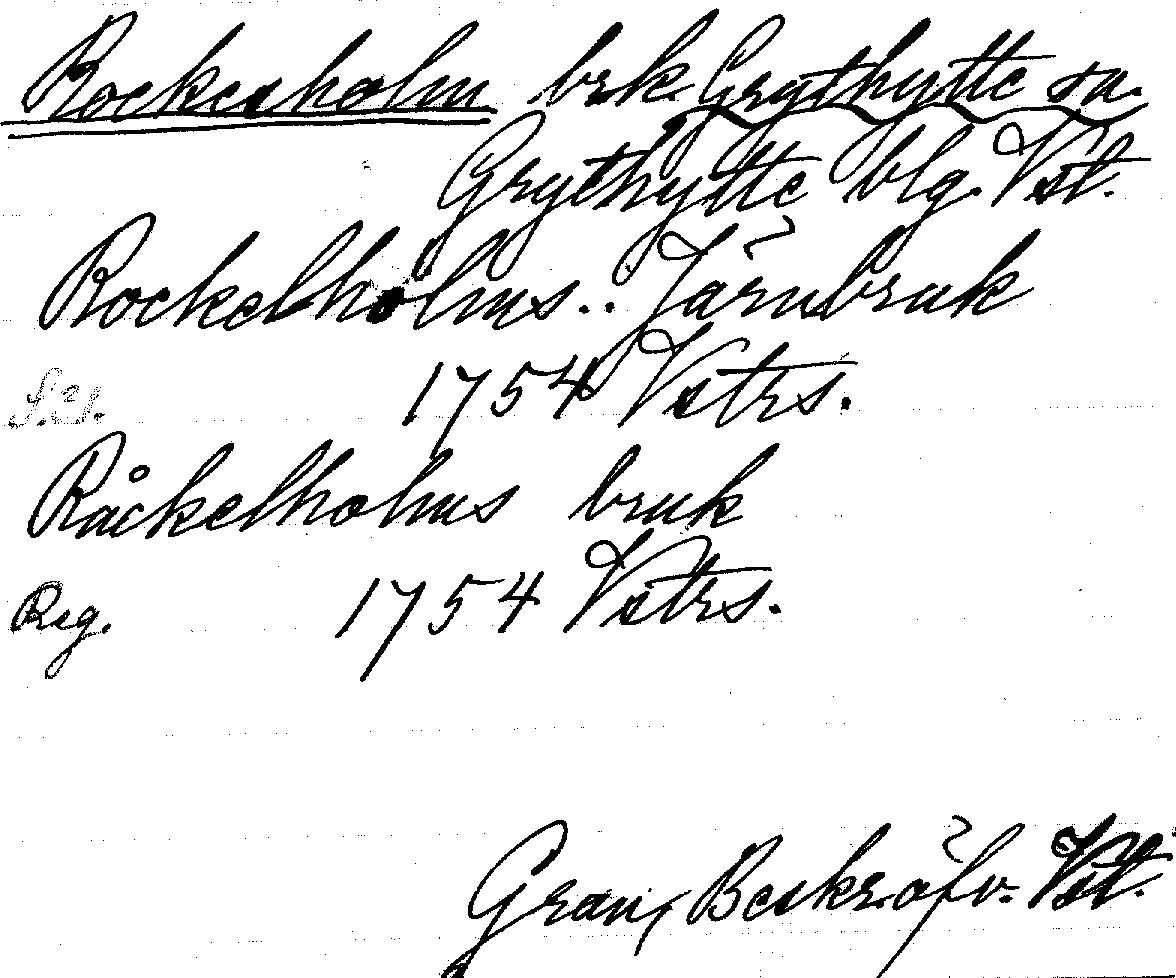 Rockesholm brk. Grythytte sn.
Grythytte blg. Vstl.
Rockelholms.. Järnbruk
S. 21. 1754 Vstrs.
Råckelholms bruk
Reg. 1754 Vstrs.
Gran, Beskr. öfv. Vstl.